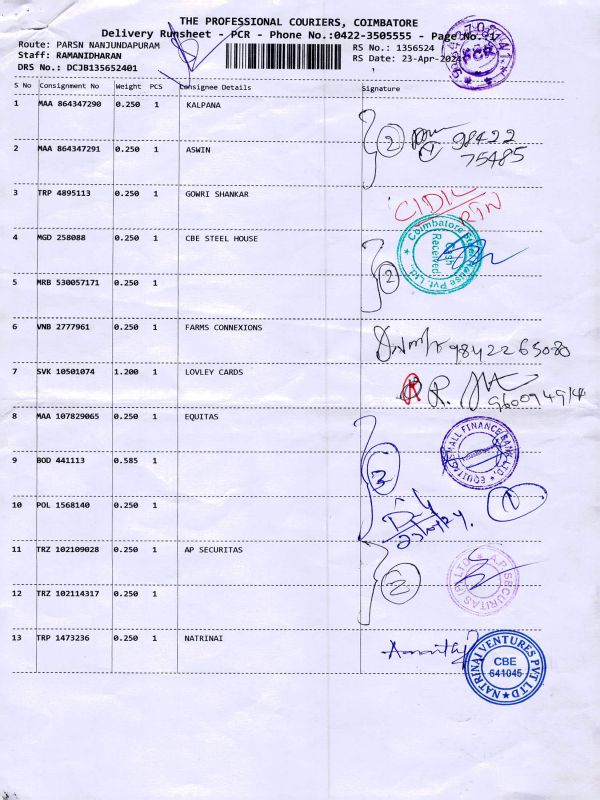 THE PROFESSIONAL COURIERS, COIMBATORE
Delivery Runsheet - PCR - Phone No.:0422-3505555 - Page No.:1
Route: PARSN NANJUNDAPURAM
RS No.: 1356524
Staff: RAMANIDHARAN
RS Date: 23-Apr-2024
DRS No.: DCJB135652401
S No Consignment No Weight PCS Consignee Details Signature
1 MAA 864347290 0.250 1 KALPANA
2 98422
75485
2 MAA 864347291 0.250 1 ASWIN
3 TRP 4895113 0.250 1 GOWRI SHANKAR
CIDIL
RTN
4 MGD 258088 0.250 1 CBE STEEL HOUSE
Coimbatore Steel House Pvt. Ltd.
Received
2
5 MRB 530057171 0.250 1
6 VNB 2777961 0.250 1 FARMS CONNEXIONS
9842265080
7 SVK 10501074 1.200 1 LOVLEY CARDS
R.
8 MAA 107829065 0.250 1 EQUITAS
EQUITAS SMALL FINANCE BANK LTD.
9 BOD 441113 0.585 1
3
1
10 POL 1568140 0.250 1
11 TRZ 102109028 0.250 1 AP SECURITAS
A.P. SECURITAS (P) LTD.
2
12 TRZ 102114317 0.250 1
13 TRP 1473236 0.250 1 NATRINAI
NATRINAI VENTURES PVT LTD
CBE
641045